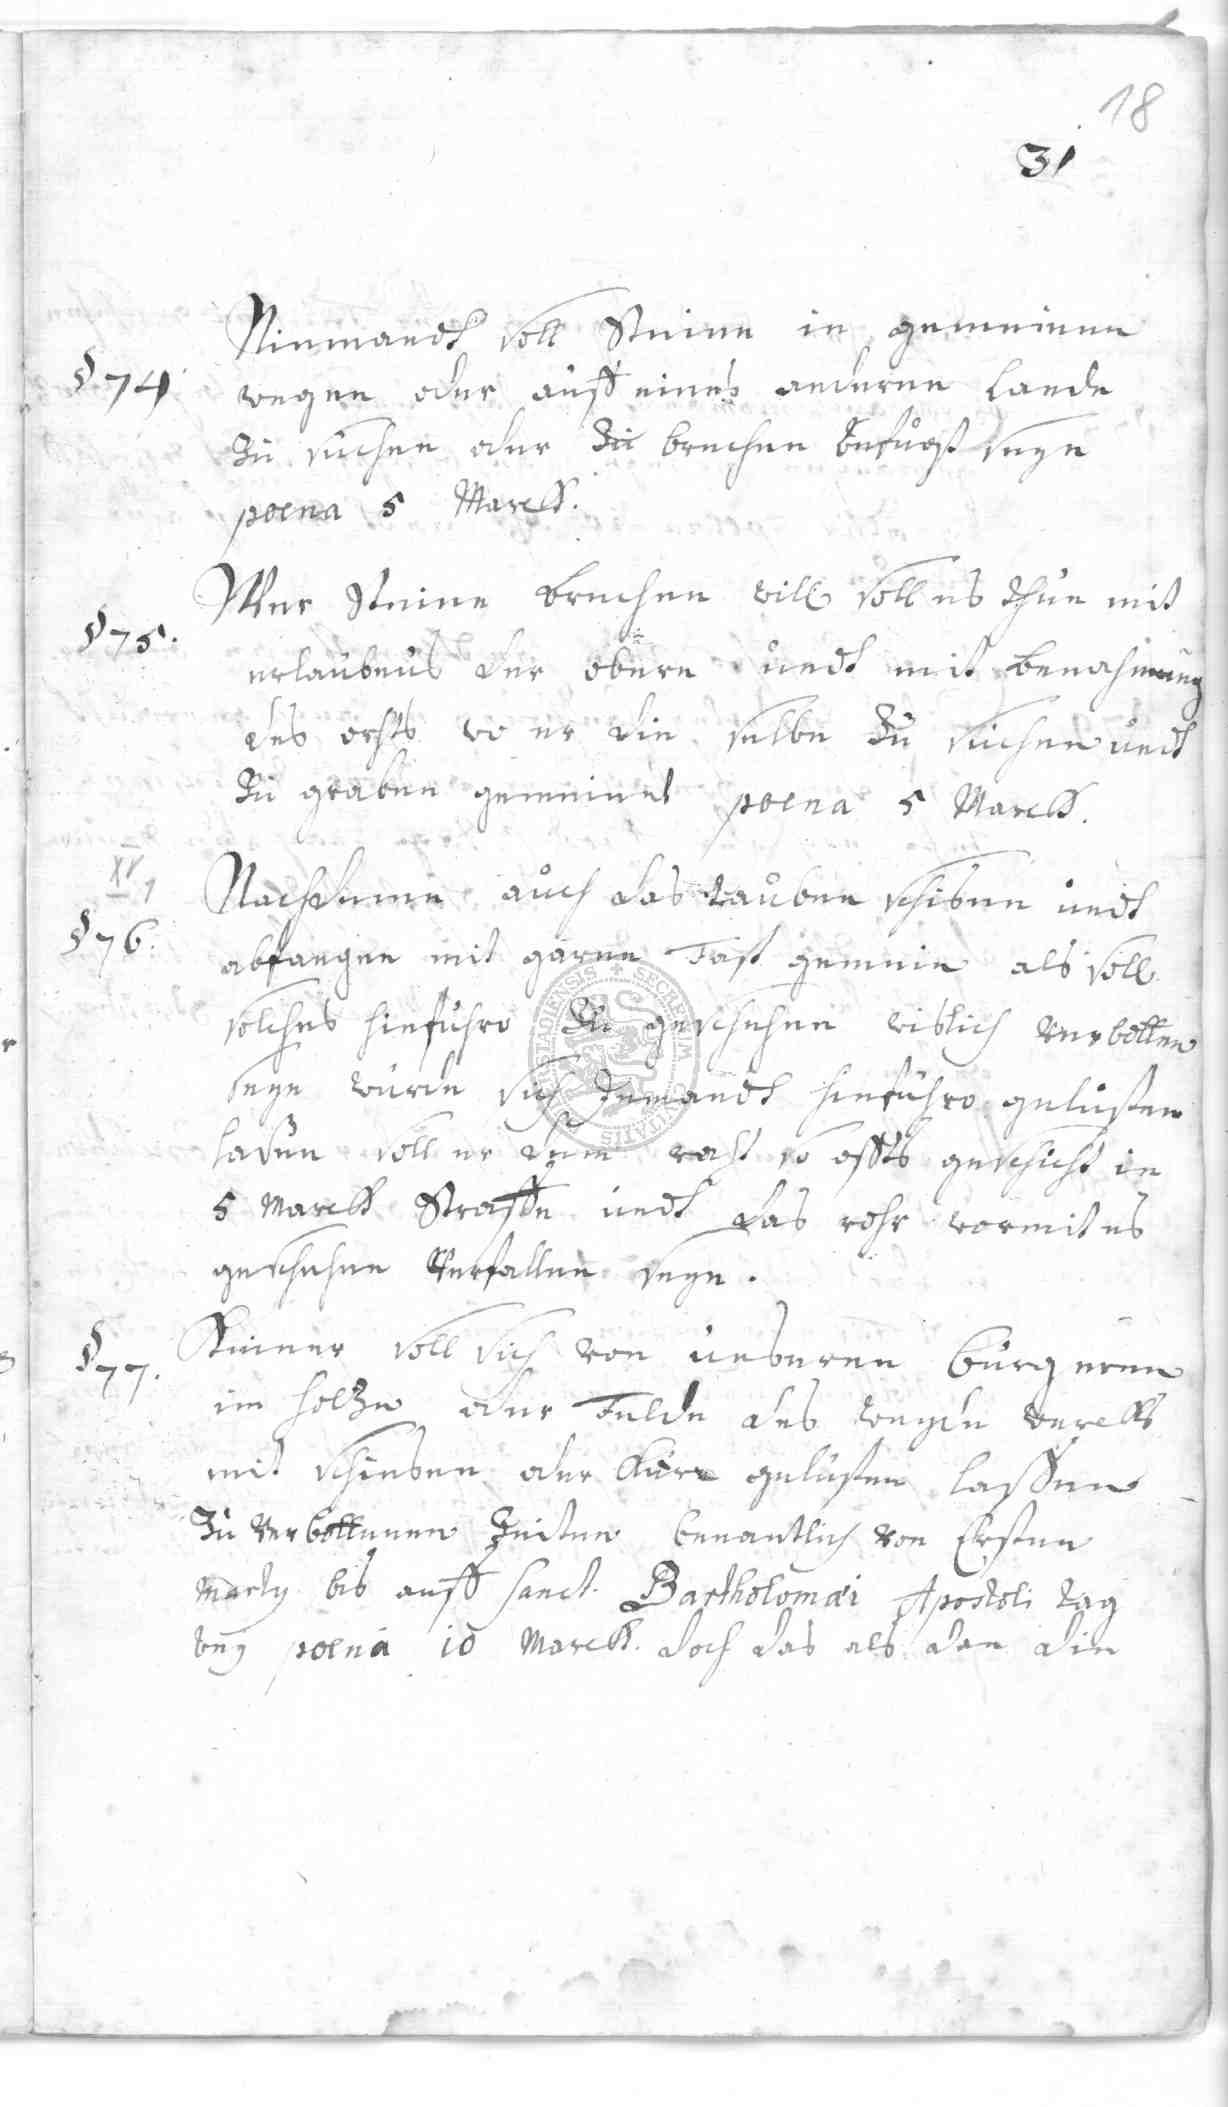 18
31
Niemandt soll Steine in gemeinen
§ 74 wegen oder auff eines anderen Lande
zu suchen oder zu brechen befugt seyn
poena 5 Marck.
Wer Steine brechen will soll es thun mit
§ 75. erlaubnus der obern undt mit benahmung
des orhts wo er die selbe zu suchen undt
zu graben gemeinet poena 5 Marck.
XV 1
Nachdeme auch das tauben schißen undt
§ 76. abfangen mit garne fast gemein als soll
solches hinfuhro zu geschehen verbotten
seyn wurde sich Jemandt hinfuhro gelusten
laßen soll er dem raht so offts geschicht in
5 Marck Straffe undt das rohr wormit es
geschehen verfallen seyn.
§ 77. Keiner soll sich von unseren burgeren
im holtze oder Felde des wercks
mit schiessen oder gelusten lassen
zu verbottenen Zeiten benantlich von Ersten
Marty bis auff Sanct. Bartholomæi Apostoli tag
bey poena 10 Marck. doch das als dan die
SECRETUM CIVITATIS